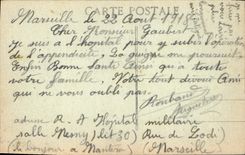 CARTE POSTALE
Marseille le 22 Aout 191
Cher Monsieur Gaubert
Je suis a l'hopital pour y subir l'opération
de l'apendicite. La guigne me poursuit
Enfin Bonne Santé Ainsi qu'a toute
votre famille. Votre tout dévoué Ami
qui ne vous oublie pas.
Roubaud
adresse R. A Hopital militaire
salle Mesny lit 30 (Rue de Lodi)
(le bonjour a Nantera) (Marseille)